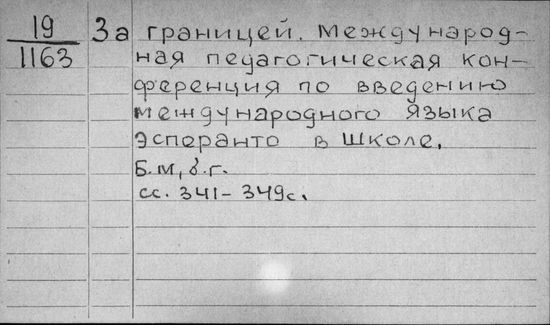 19
1163
За границей. Международ-
ная педагогическая кон-
ференция по введению
международного языка
эсперанто в школе.
Б.м, б.г.
сс. 341-349с.